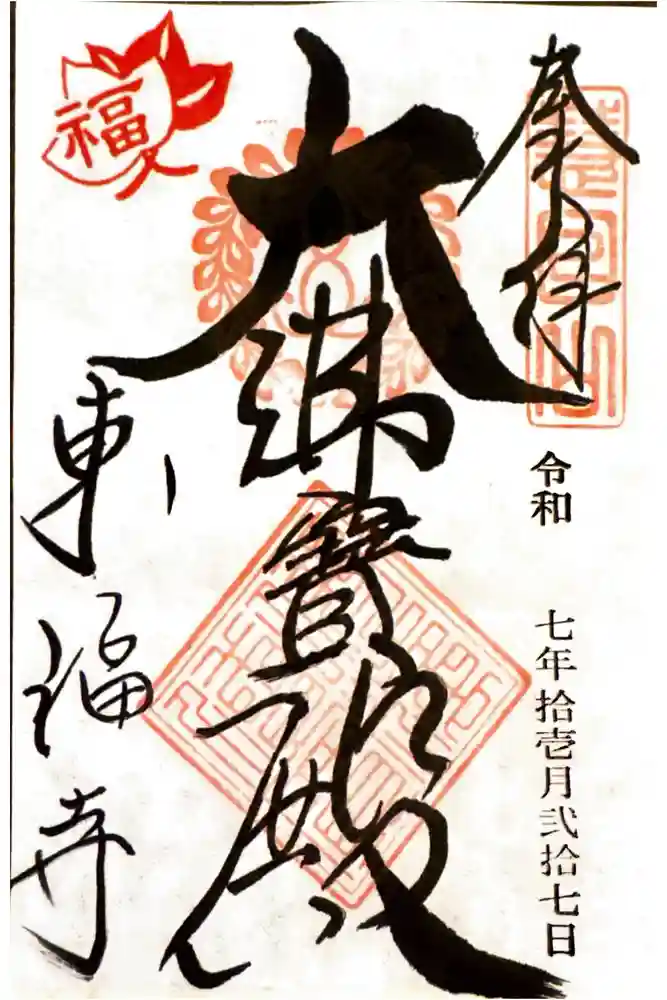 奉拝
令和 七年拾壱月弐拾七日
大佛寳殿
東福寺
福